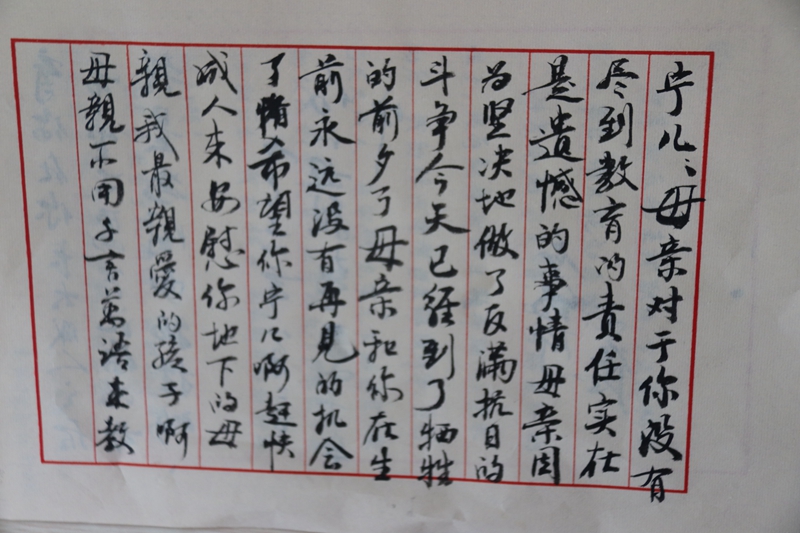 宁儿：母亲对于你没有
尽到教育的责任实在
是遗憾的事情母亲因
为坚决地做了反满抗日的
斗争今天已经到了牺牲
的前夕了母亲和你在生
前永远没有再见的机会
了希望你宁儿啊赶快
成人来安慰你地下的母
親我最親愛的孩子啊
母親不用千言萬語来教